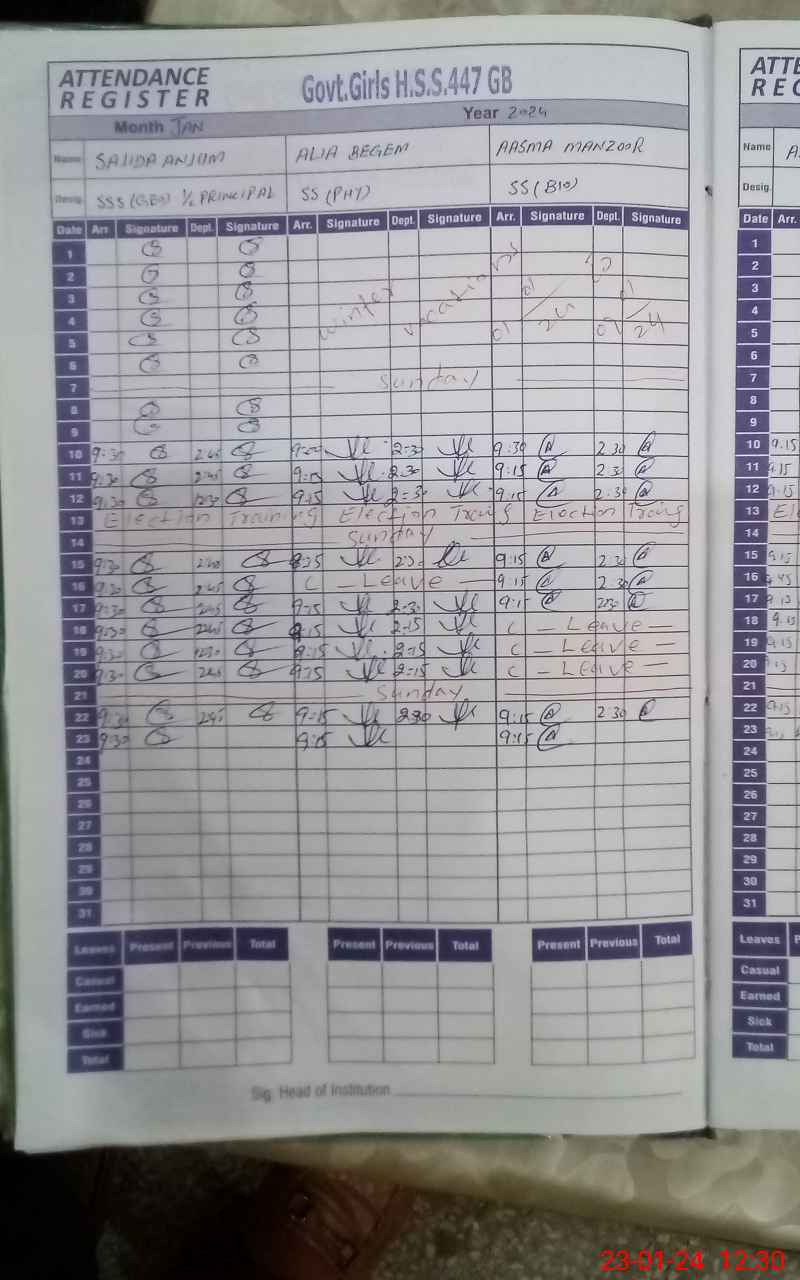 ATTENDANCE REGISTER Govt.Girls H.S.S.447 GB
Month JAN Year 2024
Name SAJIDA ANJUM ALIA BEGEM AASMA MANZOOR
Desig. SSS (GEO) 1/c PRINCIPAL SS (PHY) SS (BIO)
Date Arr. Signature Dept. Signature Arr. Signature Dept. Signature Arr. Signature Dept. Signature
1
2
3
4 winter vacations
5
6
7 Sunday
8
9
10 9:30 2:45 2:30 9:30 2:30
11 9:30 2:45 9:15 2:30 9:15 2:30
12 9:30 12:30 9:15 2:30 9:15 2:30
13 Election Training Election Traing Election Traing
14 Sunday
15 9:30 9:15 2:30
16 9:30 2:45 C - Leave - 9:15 2:30
17 9:30 2:45 9:15 2:30 9:15 2:30
18 9:30 2:45 9:15 2:15 C - Leave -
19 9:30 9:15 2:15 C - Leave -
20 9:30 2:45 9:15 2:15 C - Leave -
21 Sunday
22 9:30 2:45 9:15 2:30 9:15 2:30
23 9:30 9:15 9:15
24
25
26
27
28
29
30
31
Leaves Present Previous Total Present Previous Total Present Previous Total
Casual
Earned
Sick
Total
Sig. Head of Institution
Name
Desig.
Date Arr.
1
2
3
4
5
6
7
8
9
10 9:15
11 9:15
12 9:15
13
14
15 9:15
16
17 9:15
18 9:15
19 9:15
20 9:15
21
22 9:15
23
24
25
26
27
28
29
30
31
Leaves
Casual
Earned
Sick
Total
23-01-24 12:30